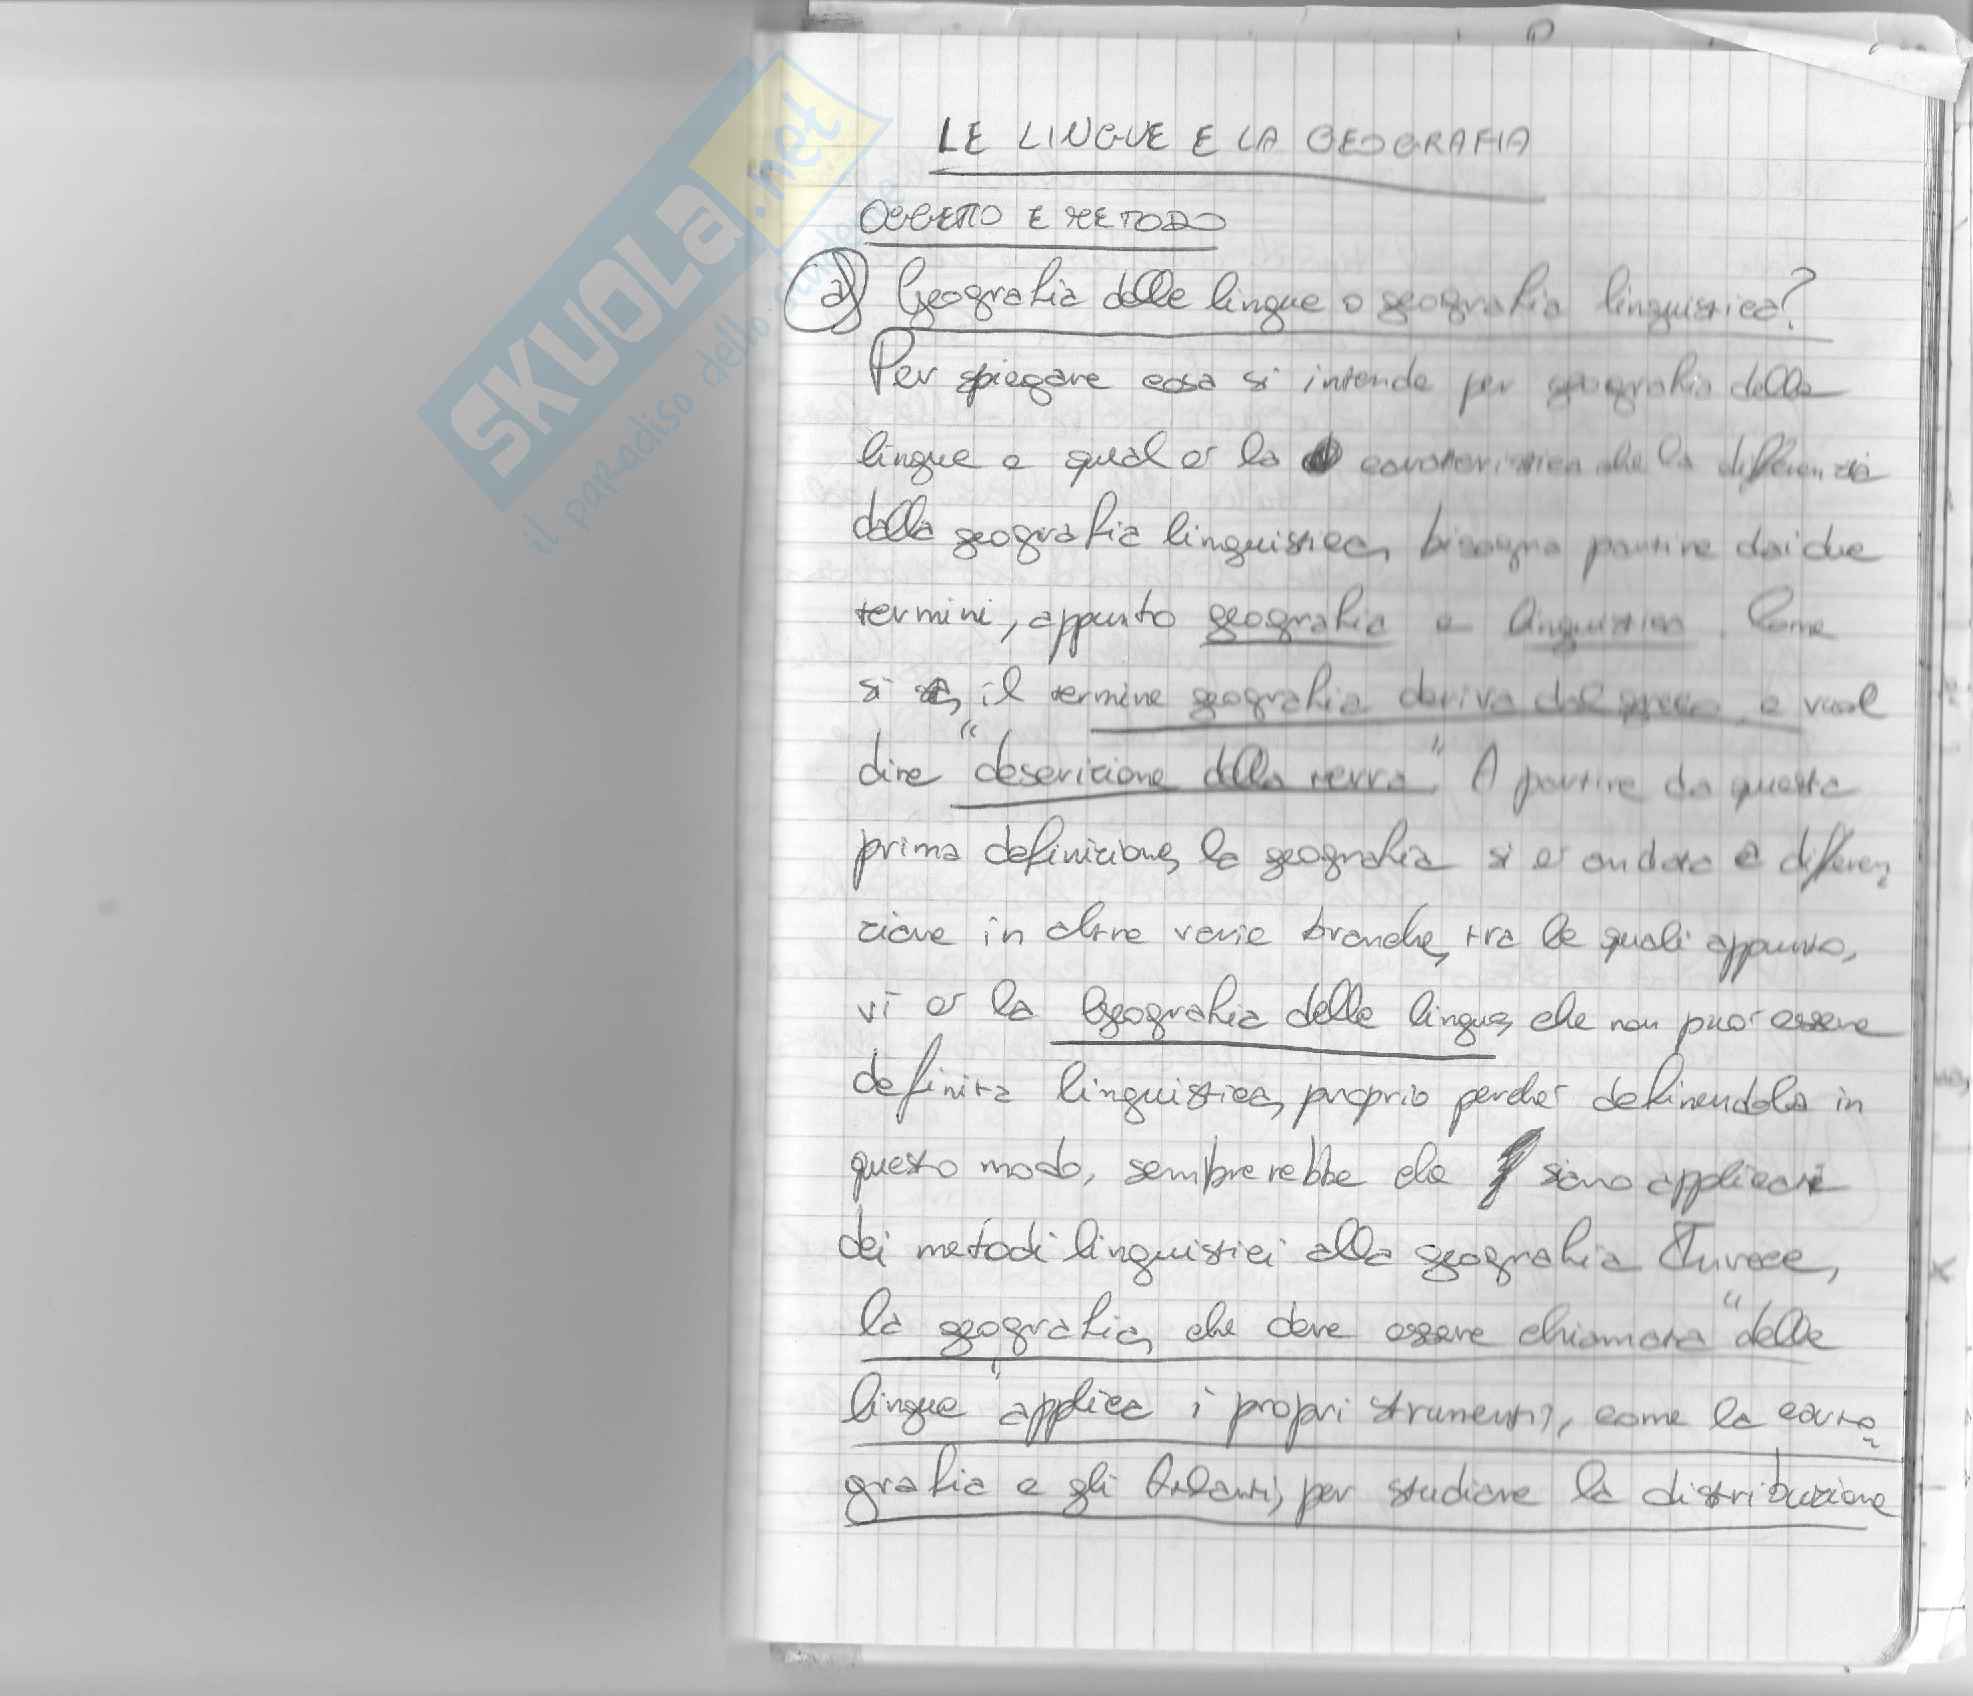 LE LINGUE E LA GEOGRAFIA
OGGETTO E METODO
a) Geografia delle lingue o geografia linguistica?
Per spiegare cosa si intende per geografia delle
lingue e qual è la caratteristica che la differenzia
dalla geografia linguistica, bisogna partire dai due
termini, appunto geografia e linguistica. Come
si sa, il termine geografia deriva dal greco e vuol
dire "descrizione della terra". A partire da questa
prima definizione, la geografia si è andata a differen-
ziare in altre varie branche, tra le quali appunto,
vi è la Geografia delle lingue, che non può essere
definita linguistica, proprio perché definendola in
questo modo, sembrerebbe che siano applicati
dei metodi linguistici alla geografia. Invece,
la geografia, che deve essere chiamata "delle
lingue" applica i propri strumenti, come la carto-
grafia e gli Atlanti, per studiare la distribuzione
SKUOLA.net
il paradiso dello studente